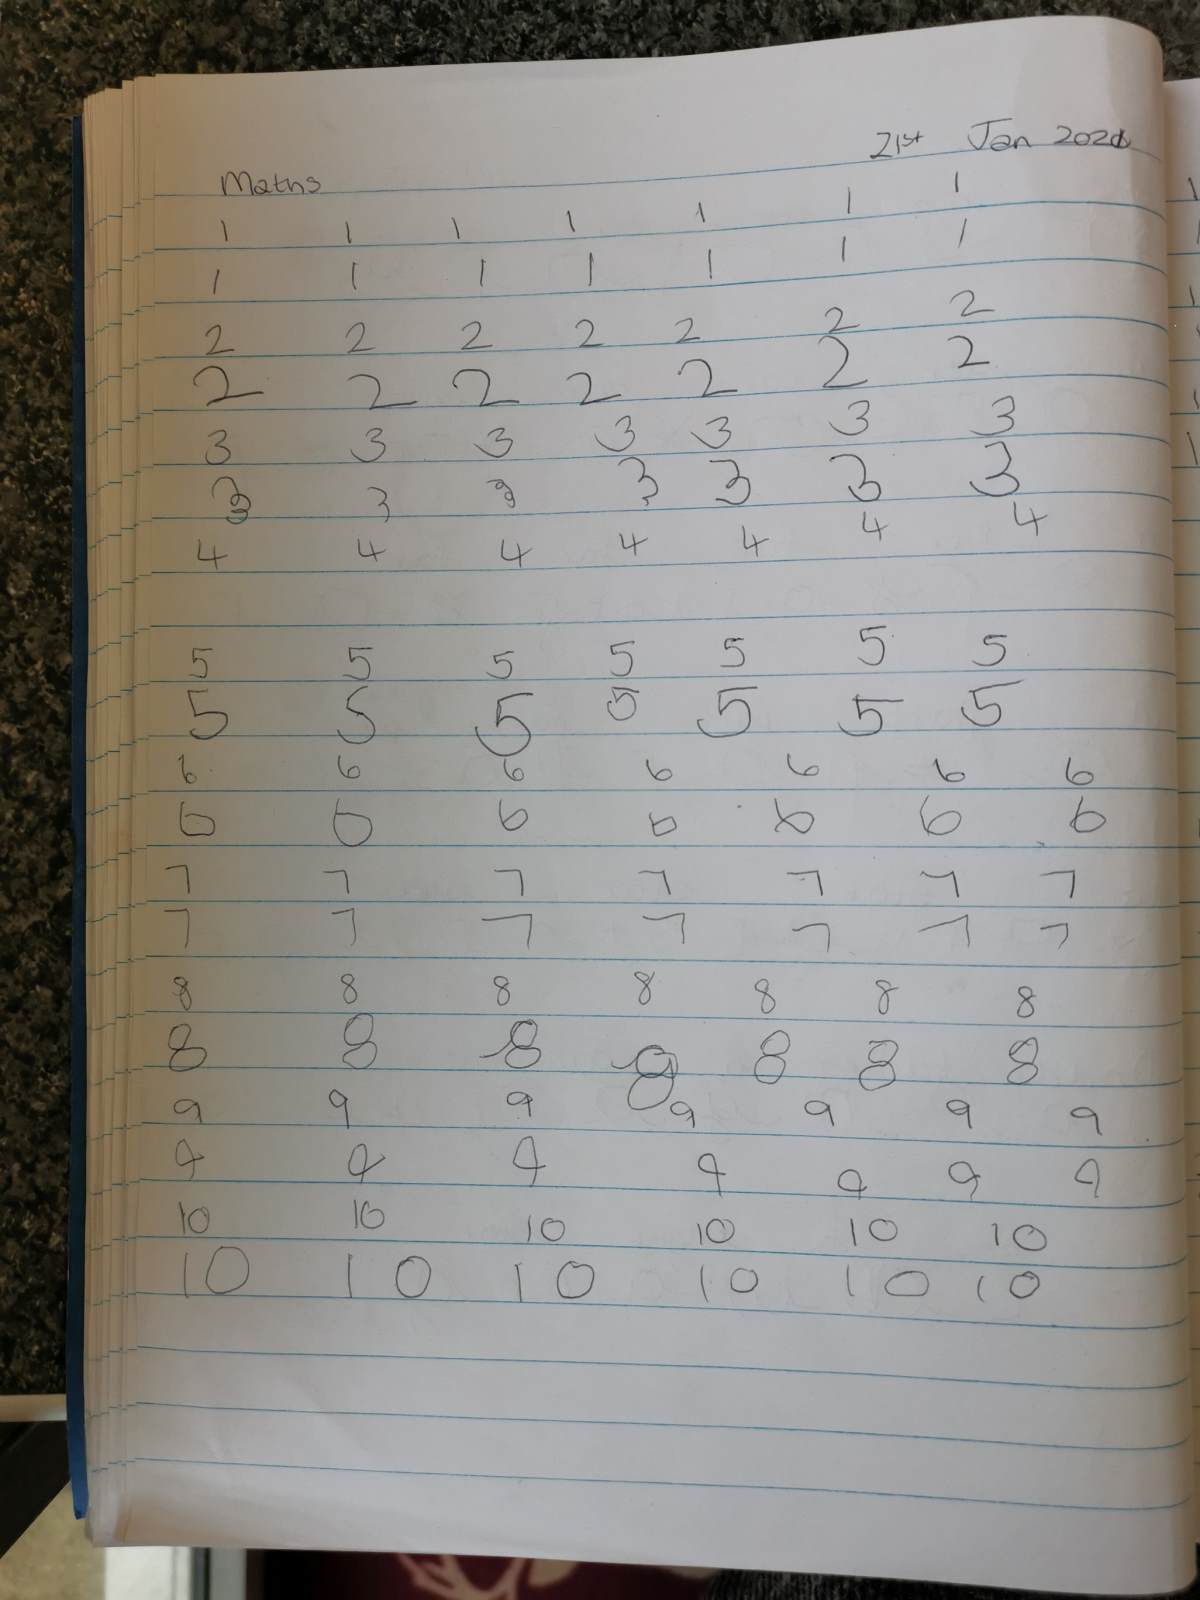 21st Jan 2021
Maths
1 1 1 1 1 1 1
1 1 1 1 1 1 1
2 2 2 2 2 2 2
2 2 2 2 2 2 2
3 3 3 3 3 3 3
3 3 3 3 3 3 3
4 4 4 4 4 4 4
5 5 5 5 5 5 5
5 5 5 5 5 5 5
6 6 6 6 6 6 6
6 6 6 6 6 6 6
7 7 7 7 7 7 7
7 7 7 7 7 7 7
8 8 8 8 8 8 8
8 8 8 8 8 8 8
9 9 9 9 9 9 9
9 9 9 9 9 9 9
10 10 10 10 10 10
10 10 10 10 10 10